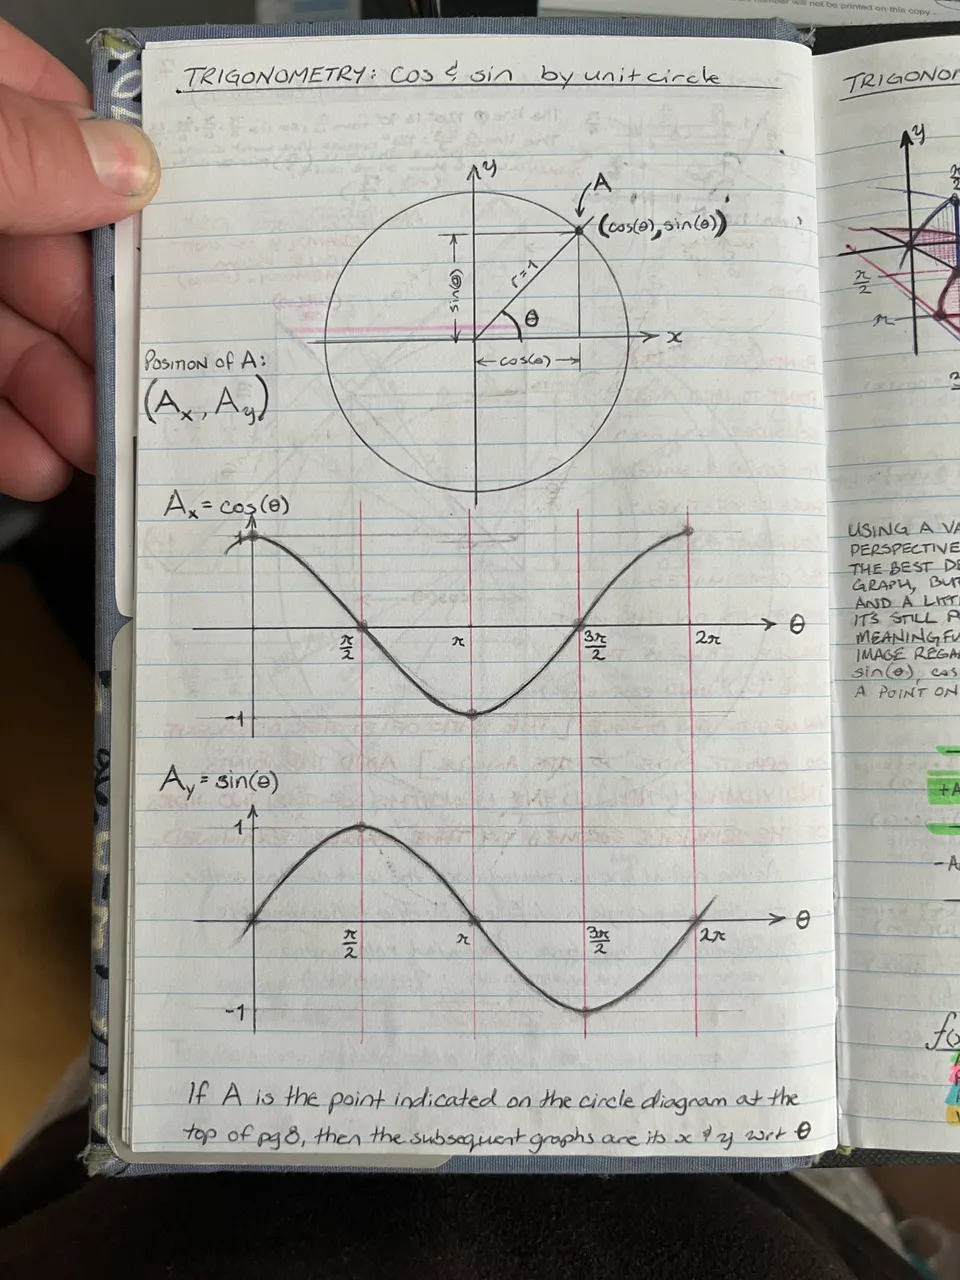 number will not be printed on this copy -
TRIGONOMETRY: COS & sin by unit circle
y
A
(cos(θ), sin(θ))
sin(θ)
r=1
θ
x
cos(θ)
Position of A:
(Ax, Ay)
Ax = cos(θ)
1
π/2
π
3π/2
2π
θ
-1
Ay = sin(θ)
1
π/2
π
3π/2
2π
θ
-1
If A is the point indicated on the circle diagram at the
top of pg 8, then the subsequent graphs are its x & y wrt θ
TRIGONO
y
π/2
π/2
π
USING A VA
PERSPECTIVE
THE BEST DE
GRAPH, BUT
AND A LITT
IT'S STILL
MEANINGFU
IMAGE REGA
sin(θ), cos
A POINT ON
+A
-A
fo